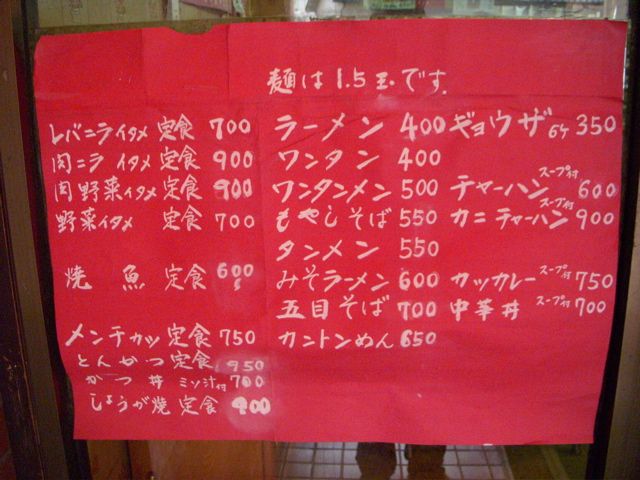 麺は1.5玉です.
レバニライタメ 定食 700
肉ニラ イタメ 定食 900
肉野菜イタメ 定食 900
野菜イタメ 定食 700
焼魚定食 600
メンチカツ定食 750
とんかつ定食 950
かつ丼 ミソ汁付 700
しょうが焼定食 900
ラーメン 400
ワンタン 400
ワンタンメン 500
もやしそば 550
タンメン 550
みそラーメン 600
五目そば 700
カントンめん 650
ギョウザ 6ケ 350
チャーハン スープ付 600
カニチャーハン スープ付 900
カツカレー スープ付 750
中華丼 スープ付 700